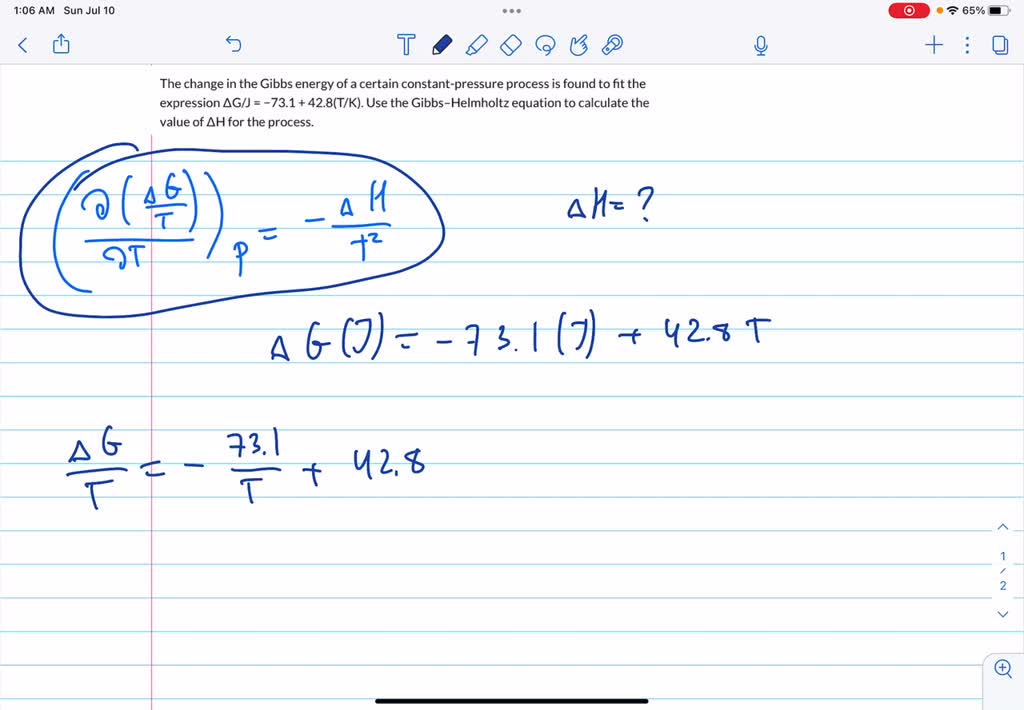 1:06 AM Sun Jul 10
65%
The change in the Gibbs energy of a certain constant-pressure process is found to fit the
expression ΔG/J = −73.1 + 42.8(T/K). Use the Gibbs–Helmholtz equation to calculate the
value of ΔH for the process.
(∂(ΔG/T)/∂T)p = −ΔH/T²
ΔH = ?
ΔG(J) = −73.1(J) + 42.8 T
ΔG/T = −73.1/T + 42.8
1
/
2